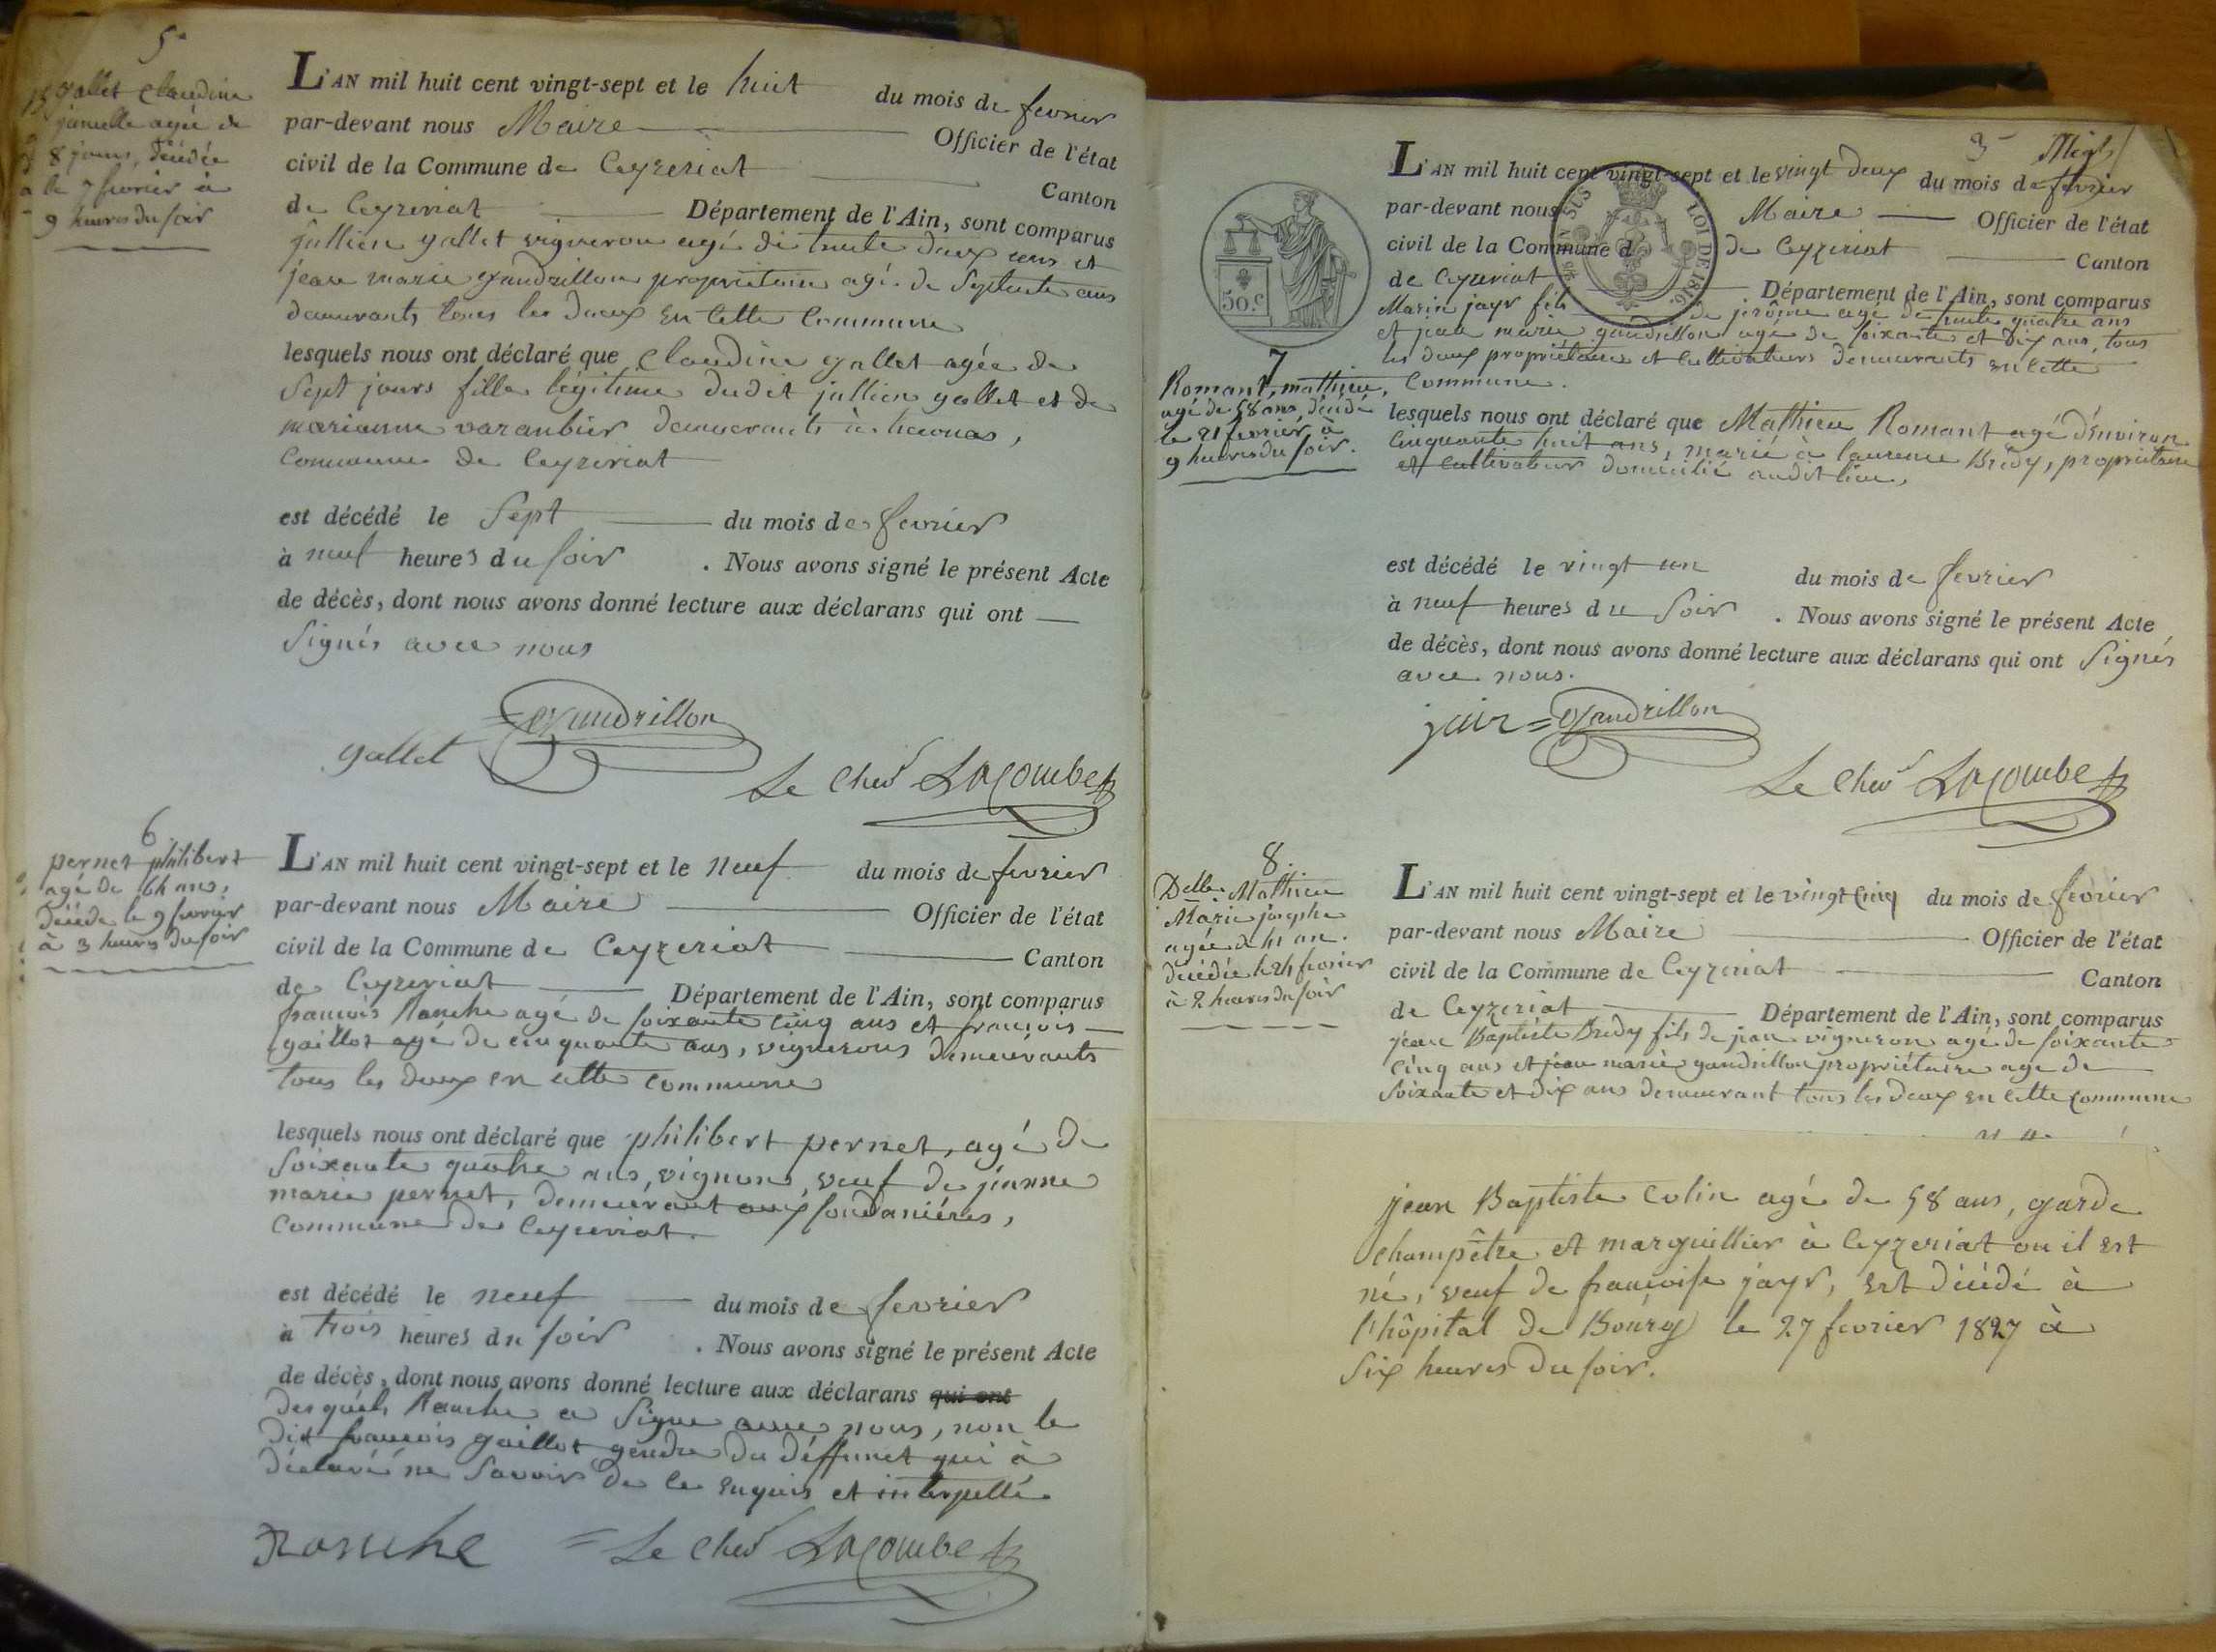 5e
Gallet Claudine
jumelle agée de
8 jours, décédée
le 7 fevrier à
9 heures du soir
L'AN mil huit cent vingt-sept et le huit du mois de fevrier
par-devant nous Maire Officier de l'état
civil de la Commune de Ceyzeriat Canton
de Ceyzeriat Département de l'Ain, sont comparus
jullien gallet vigneron agé de trente deux ans et
jean marie gandrillon propriétaire agé de Septente ans
demeurants tous les deux en cette Commune
lesquels nous ont déclaré que Claudine gallet agée de
Sept jours fille légitime dudit jullien gallet et de
marianne varanbier demeurants à
Commune de Ceyzeriat
est décédé le Sept du mois de fevrier
à neuf heures du soir . Nous avons signé le présent Acte
de décès, dont nous avons donné lecture aux déclarans qui ont
Signés avec nous
gallet Gandrillon
Le Chev Lacombe
6
pernet philibert
agé de 64 ans,
décédé le 9 fevrier
à 3 heures du soir
L'AN mil huit cent vingt-sept et le neuf du mois de fevrier
par-devant nous Maire Officier de l'état
civil de la Commune de Ceyzeriat Canton
de Ceyzeriat Département de l'Ain, sont comparus
francois Ranche agé de soixante cinq ans et francois
gaillot agé de cinquante ans, vignerons demeurants
tous les deux en cette commune
lesquels nous ont déclaré que philibert pernet, agé de
Soixante quatre ans, vigneron, veuf de jeanne
marie pernet, demeurant aux soudanières,
Commune de Ceyzeriat.
est décédé le neuf du mois de fevrier
à trois heures du soir . Nous avons signé le présent Acte
de décès, dont nous avons donné lecture aux déclarans qui ont
desquels Ranche a Signé avec nous, non le
dit francois gaillot gendre du déffunct qui à
déclaré ne Savoir de ce enquis et interpellé
Ranche = Le Chev Lacombe
3
L'AN mil huit cent vingt-sept et le vingt deux du mois de fevrier
par-devant nous Maire Officier de l'état
civil de la Commune de Ceyzeriat
de Ceyzeriat Canton
Département de l'Ain, sont comparus
50.C
LOI DE 1816
7
Romant, mathieu,
agé de 58 ans, décédé
le 21 fevrier à
9 heures du soir.
Marin jayr fils de jérôme agé de trente quatre ans
et jean marie gandrillon agé de soixante et dix ans, tous
les deux propriétaires et cultivateurs demeurants en cette
Commune.
lesquels nous ont déclaré que Mathieu Romant agé d'environ
Cinquante huit ans, marié à laurence Brédy, propriétaire
et cultivateur domicilié audit lieu,
est décédé le vingt un du mois de fevrier
à neuf heures du Soir . Nous avons signé le présent Acte
de décès, dont nous avons donné lecture aux déclarans qui ont Signés
avec nous.
jair = Gandrillon
Le Chev Lacombe
8.
Delle Mathieu
Marie josephe
agée de 41 an.
décédée le 24 fevrier
à 2 heures du soir
L'AN mil huit cent vingt-sept et le vingt cinq du mois de fevrier
par-devant nous Maire Officier de l'état
civil de la Commune de Ceyzeriat Canton
de Ceyzeriat Département de l'Ain, sont comparus
jean Baptiste Bredy fils de jean vigneron agé de soixante
Cinq ans et jean marie gandrillon propriétaire agé de
Soixante et dix ans demeurant tous les deux en cette commune
jean Baptiste colin agé de 58 ans, garde
champêtre et marguillier à Ceyzeriat ou il est
né, veuf de françoise jayr, est décédé à
l'hôpital de Bourg le 27 fevrier 1827 à
Six heures du soir.